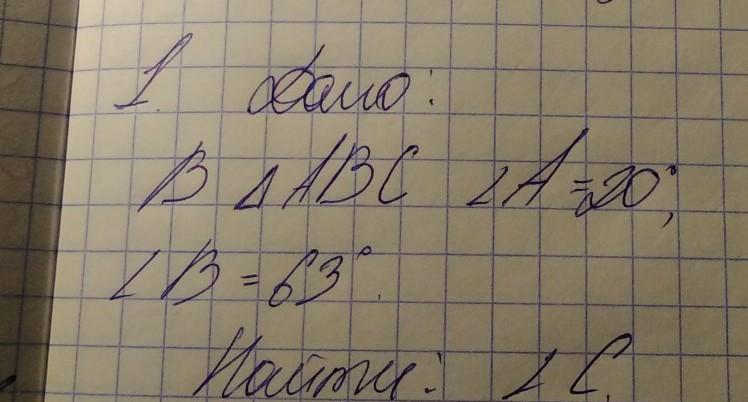 1. Дано:
В ΔABC ∠A=20°,
∠B=63°.
Найти: ∠C.